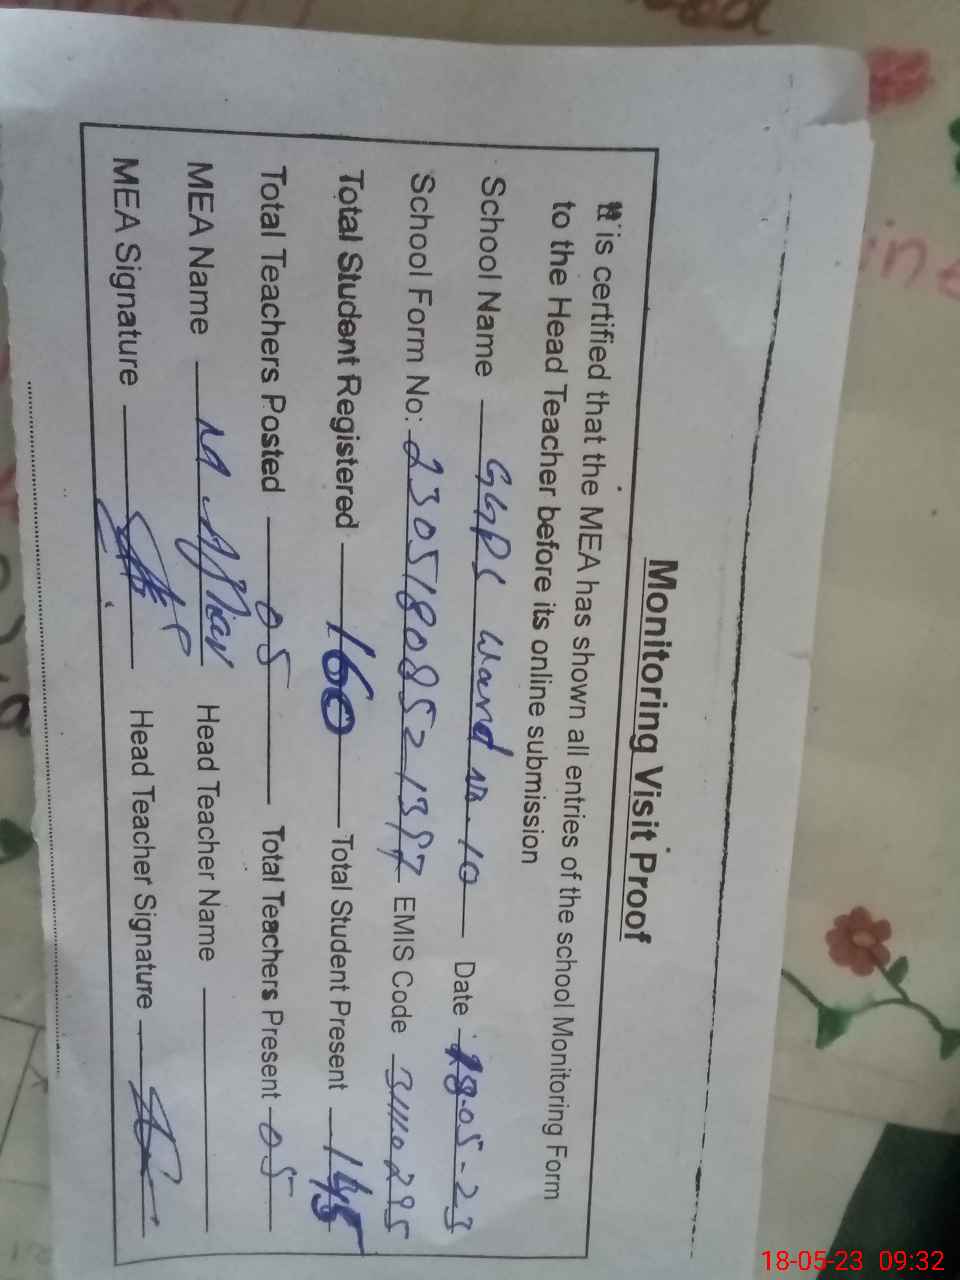 Monitoring Visit Proof
It is certified that the MEA has shown all entries of the school Monitoring Form
to the Head Teacher before its online submission
School Name GGPS Ward No. 10 Date 18-05-23
School Form No: 2305180852 EMIS Code
Total Student Registered 160 Total Student Present 145
Total Teachers Posted 05 Total Teachers Present 05
MEA Name M Head Teacher Name
MEA Signature Head Teacher Signature
18-05-23 09:32